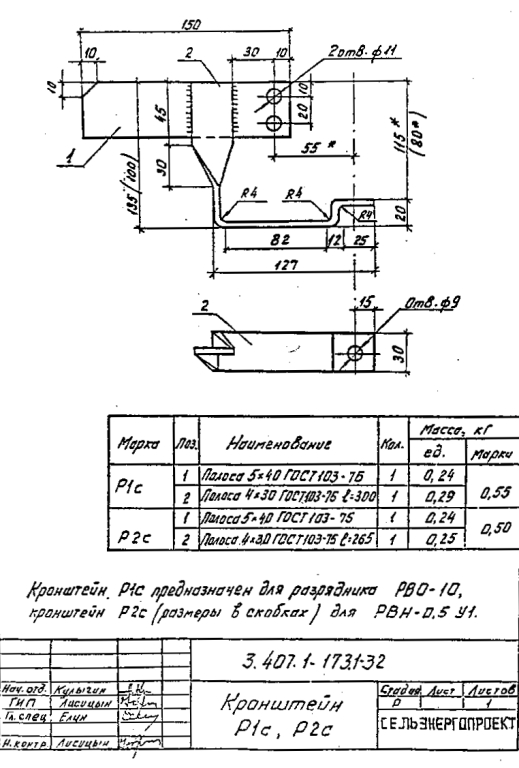 150
10
2
30
10
2 отв. ф11
10
10
20
45
115*
(80*)
1
55*
135 (100)
30
R4
R4
R4
20
82
12
25
127
15
Отв. ф9
2
30
Марка Поз. Наименование Кол. Масса, кг
ед. марки
Р1с 1 Полоса 5×40 ГОСТ 103-76 1 0,24 0,55
2 Полоса 4×30 ГОСТ 103-76 ℓ=300 1 0,29
Р2с 1 Полоса 5×40 ГОСТ 103-76 1 0,24 0,50
2 Полоса 4×30 ГОСТ 103-76 ℓ=265 1 0,25
Кронштейн Р1с предназначен для разрядника РВО-10,
кронштейн Р2с (размеры в скобках) для РВН-0,5 У1.
3.407.1-173.1-32
Нач. отд. Кулыгин
ГИП Лисицын
Гл. спец Елин
Н. контр Лисицын
Кронштейн
Р1с, Р2с
Стадия Лист Листов
Р 1
СЕЛЬЭНЕРГОПРОЕКТ